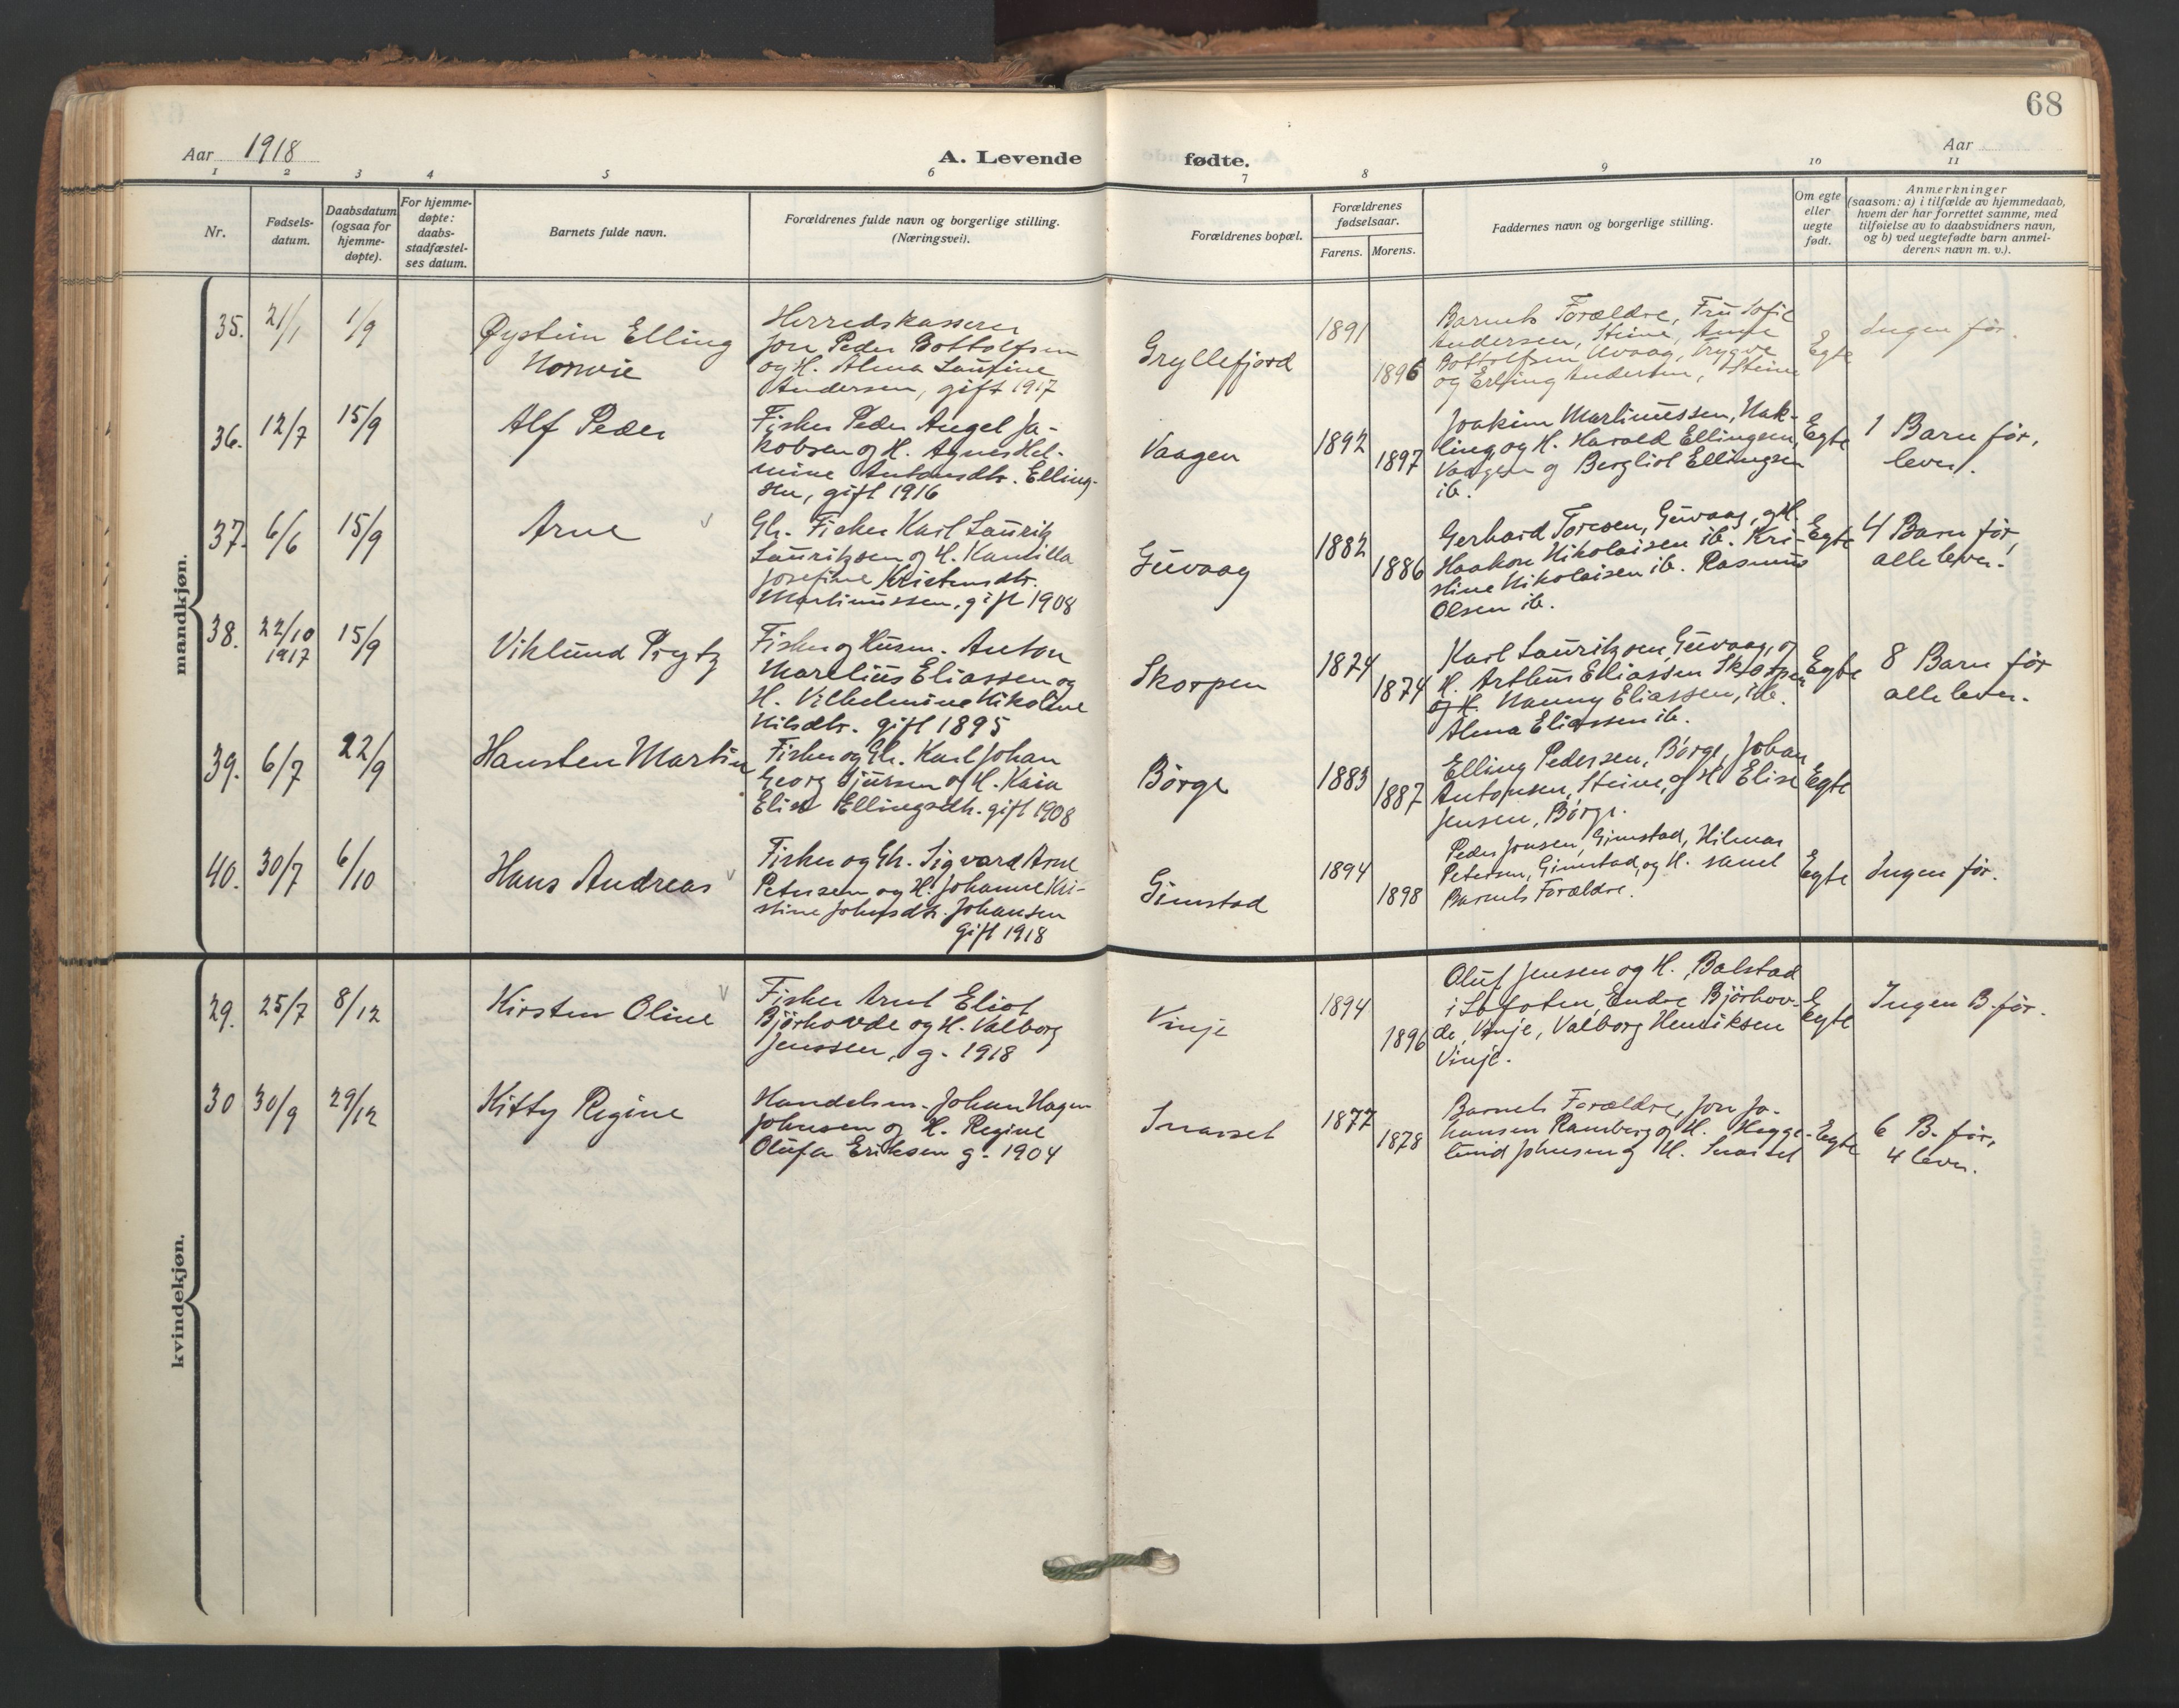 68
Aar 1918
A. Levende
fødte.
Aar
1 2 3 4 5 6 7 8 9 10 11
Nr.
Fødsels-
datum.
Daabsdatum
(ogsaa for
hjemme-
døpte).
For hjemme-
døpte:
daabs-
stadfæstel-
ses datum.
Barnets fulde navn.
Forældrenes fulde navn og borgerlige stilling.
(Næringsvei).
Forældrenes bopæl.
Forældrenes
fødselsaar.
Farens. Morens.
Faddernes navn og borgerlige stilling.
Om egte
eller
uegte
født.
Anmerkninger
(saasom: a) i tilfælde av hjemmedaab,
hvem der har forrettet samme, med
tilføielse av to daabsvidners navn,
og b) ved uegtefødte barn anmel-
derens navn m. v.).
mandkjøn.
35. 21/1 1/9
Øystein Elling
Herredskasserer
Jon Peder Bottolfsen
og H. Alma Laurine
Andersen, gift 1917
Gryllefjord
1891
1896
Barnets Forældre, Fru Sofie
Andersen, Steine,
Bottolfsen Uvaag, Trygve
og Erling Andersen, Steine
Egte
Ingen før.
36. 12/7 15/9
Alf Peder
Fisker Peder Angel Ja-
kobsen og H. Agnes Hel-
mine Antonsdtr. Elling-
sen, gift 1916
Vaagen
1892
1897
Joakim Martinussen, Hak-
ling og H. Harald Ellingsen,
Vaagen og Bergliot Ellingsen
ib.
Egte
1 Barn før,
lever.
37. 6/6 15/9
Arne
Gb. Fisker Karl Laurits
Lauritzsen og H. Kantilla
Josefine Kristensdtr.
Martinussen, gift 1908
Guvaag
1882
1886
Gerhard Toresen, Guvaag, og H.
Haakon Nikolaisen ib. Kri-
stine Nikolaisen ib. Rasmus
Olsen ib.
Egte
4 Barn før,
alle lever.
38. 22/10 1917 15/9
Viklund Prytz
Fisker og Husm. Anton
Marelius Eliassen og
H. Vilhelmine Nikoline
Nilsdtr. gift 1895
Skorpen
1874
1874
Karl Lauritzsen, Guvaag, og
H. Arthur Eliassen Skorpen
og H. Nanny Eliassen, ib.
Alma Eliassen ib.
Egte
8 Barn før
alle lever.
39. 6/7 22/9
Hansten Martin
Fisker og Gb. Karl Johan
Georg Sjursen og H. Kaia
Elise Ellingsdtr. gift 1908
Børge
1883
1887
Elling Pedersen, Børge, Johan
Antonsen, Steine, og H. Elise
Jensen, Børge.
Egte
40. 30/7 6/10
Hans Andreas
Fisker og Gb. Sigvard Arne
Petersen og H. Johanne Kri-
stine Johnsdtr. Johansen
Gift 1918
Gimstad
1894
1898
Peder Jonsen, Gimstad, Hilmar
Petersen, Gimstad, og H. samt
Barnets Forældre.
Egte
Ingen før.
kvindekjøn.
29. 25/7 8/12
Kirsten Oline
Fisker Arnt Eliot
Bjørhovde og H. Valborg
Jenssen, g. 1918
Vinje
1894
1896
Oluf Jensen og H., Balstad
i Lofoten, Endre Bjørhov-
de, Vinje, Valborg Henriksen
Vinje.
Egte
Ingen B. før.
30 30/9 29/12
Kitty Regine
Handelsm. Johan Hagen
Johnsen og H. Regine
Olufa Eriksen g. 1904
Smaiset
1877
1878
Barnets Forældre, Jon Jo-
hansen Ramberg og H. Hegge-
lund Johnsen og H.
Egte
6 B. før,
4 lever.